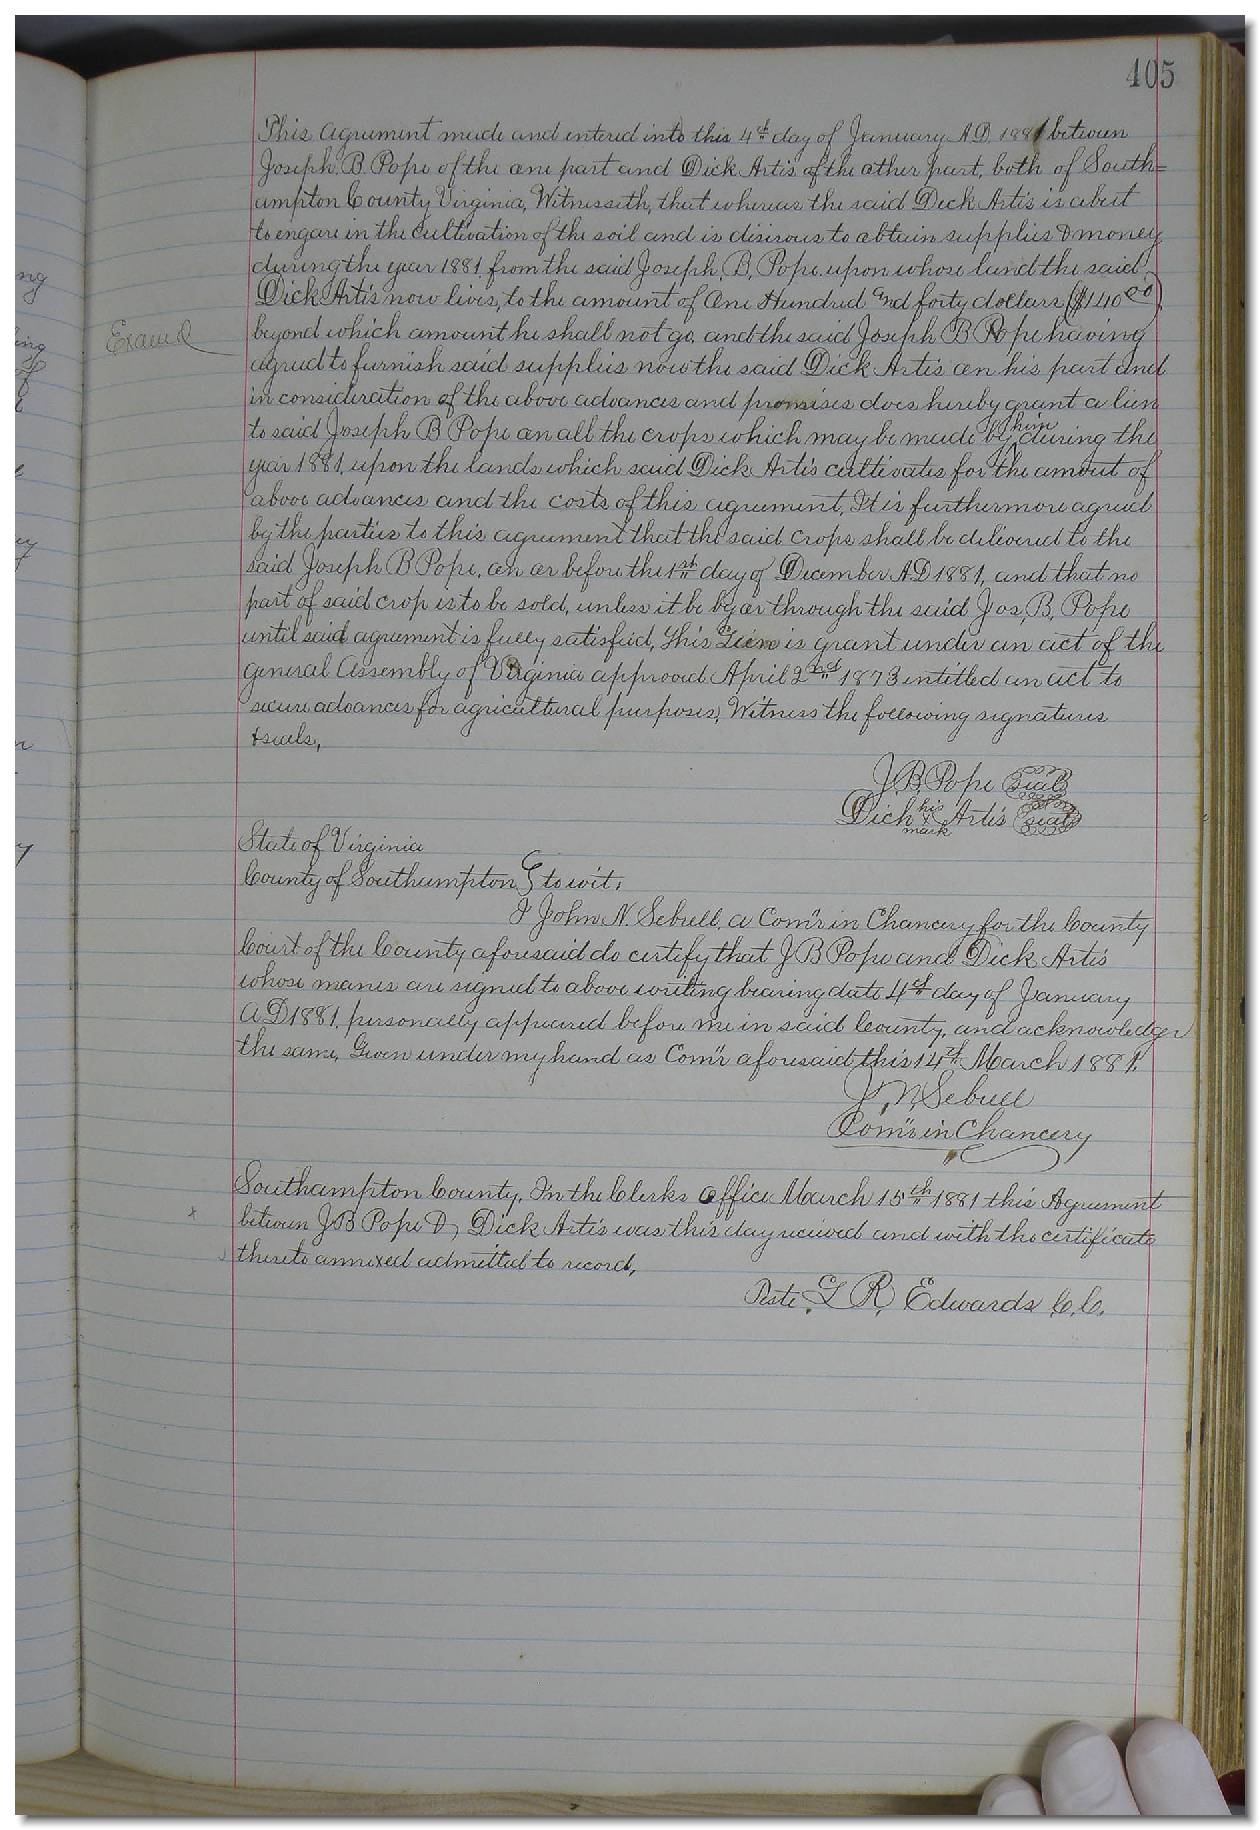 405
This Agreement made and entered into this 4th day of January A.D. 1881 between
Joseph. B. Pope of the one part and Dick Artis of the other part, both of South=
ampton County Virginia, Witnesseth, that whereas the said Dick Artis is abut
to engare in the Cultivation of the soil and is disirous to obtain supplies & money
during the year 1881 from the said Joseph. B. Pope upon whose land the said
Dick Artis now lives, to the amount of One Hundred and forty dollars ($140.00)
Exam'd
beyond which amount he shall not go, and the said Joseph B Pope having
agreed to furnish said supplies now the said Dick Artis on his part and
in consideration of the above advances and promises does hereby grant a lien
to said Joseph B Pope on all the crops which may be made by him during the
year 1881, upon the lands which said Dick Artis cultivates for the amout of
above advances and the costs of this agreement, It is furthermore agreed
by the parties to this agreement that the said crops shall be delivered to the
said Joseph B Pope, on or before the 1st day of December AD 1881, and that no
part of said crop is to be sold, unless it be by or through the said Jos, B, Pope
until said agreement is fully satisfied, This Lien is grant under an act of the
general Assembly of Virginia approved April 2nd 1873 entitled an act to
secure advances for agricultural purposes, Witness the following signatures
& seals,
J. B. Pope seal
Dick his x mark Artis seal
State of Virginia
County of Southampton } to wit,
I John N. Sebrell, a Com'r in Chancery for the County
Court of the County aforesaid do certify that J B Pope and Dick Artis
whose manes are signed to above writing bearing date 4th day of January
A.D 1881, personally appeared before me in said County, and acknowledger
the same, Given under my hand as Com'r aforesaid this 14th March 1881.
J. N. Sebrell
Com'r in Chancery
Southampton County, In the Clerks office March 15th 1881 this Agreement
between J B Pope & Dick Artis was this day received and with the certificate
thereto annexed admitted to record,
Teste L R, Edwards C.C.